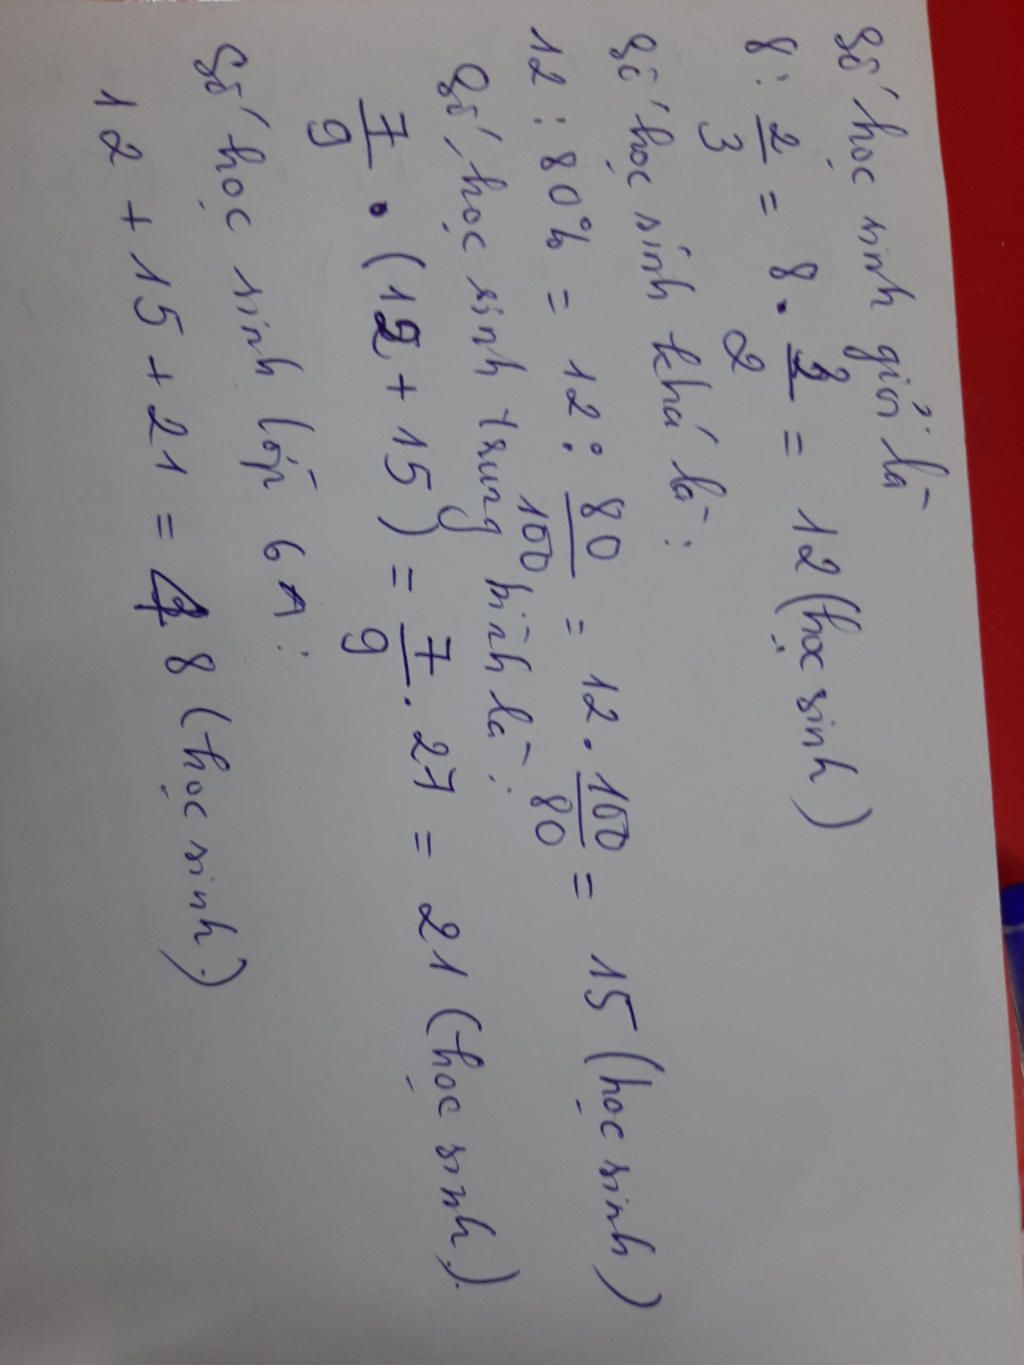 Số học sinh giỏi là
8 : 2/3 = 8 . 3/2 = 12 (học sinh)
Số học sinh khá là :
12 : 80% = 12 : 80/100 = 12 . 100/80 = 15 (học sinh)
Số học sinh trung bình là :
7/9 . (12 + 15) = 7/9 . 27 = 21 (học sinh).
Số học sinh lớp 6A :
12 + 15 + 21 = 48 (học sinh)